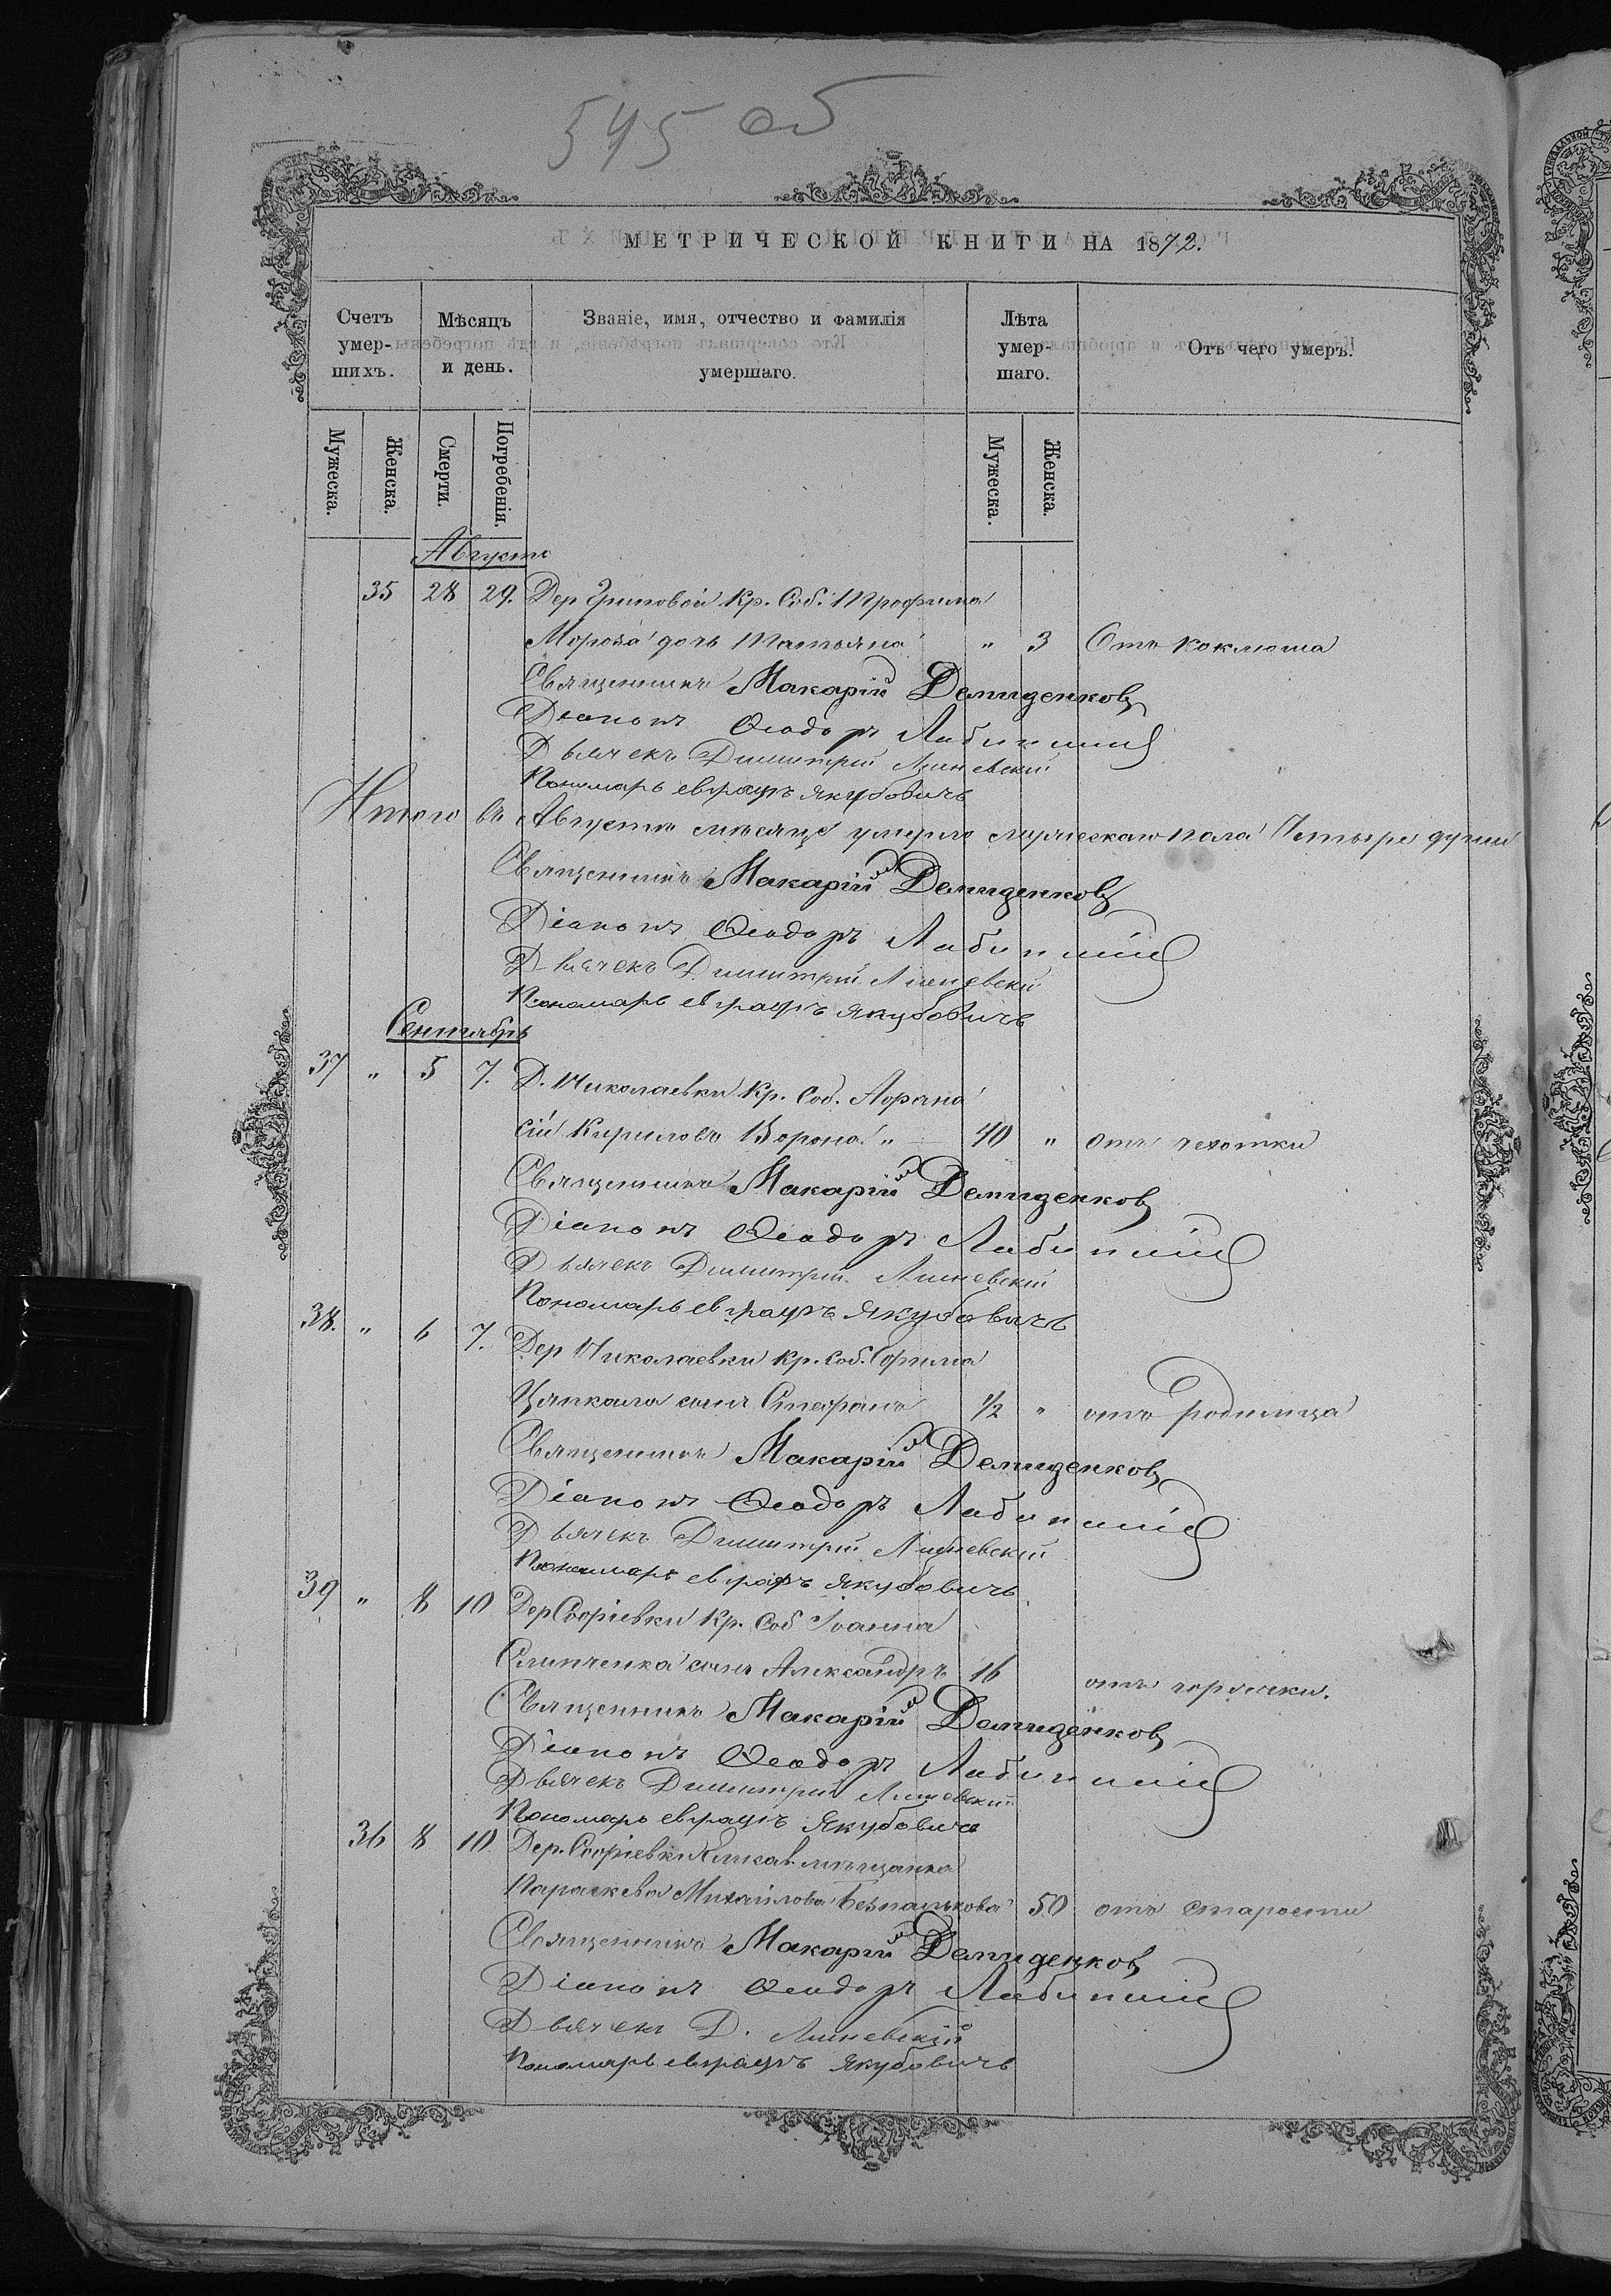 545 об
МЕТРИЧЕСКОЙ КНИГИ НА 1872.
Счетъ умер-шихъ.
Мѣсяцъ и день.
Званіе, имя, отчество и фамилія умершаго.
Лѣта умер-шаго.
Отъ чего умеръ.
Мужеска. Женска. Смерти. Погребенія. Мужеска. Женска.
Августъ
35 28 29. Дер Гриповой Кр. Соб. Трофима
Мороза дочь Татьяна „ 3 Отъ коклюша
Священникъ Макарій Демиденковъ
Діаконъ Ѳеодоръ
Дьячекъ Димитрій Лишевскій
Пономарь Евграфъ Якубовичъ
Итого въ Августѣ мѣсяцѣ умерло мужескаго пола Четыре души
Священникъ Макарій Демиденковъ
Діаконъ Ѳеодоръ
Дьячекъ Димитрій Лишевскій
Пономарь Евграфъ Якубовичъ
Сентябрь
37 „ 5 7. Д. Николаевки Кр. Соб. Аѳана
сій Кириловъ Ворона „ 40 „ отъ чехотки
Священникъ Макарій Демиденковъ
Діаконъ Ѳеодоръ
Дьячекъ Димитрій Лишевскій
Пономарь Евграфъ Якубовичъ
38. „ 6 7. Дер Николаевки Кр. Соб.
Цапкала сынъ Стефанъ 1/2 „ отъ родимца
Священникъ Макарій Демиденковъ
Діаконъ Ѳеодоръ
Дьячекъ Димитрій Лишевскій
Пономарь Евграфъ Якубовичъ
39 „ 8 10 Дер Софіевки Кр. Соб Іоанна
Слипченка сынъ Александръ 16 отъ горячки.
Священникъ Макарій Демиденковъ
Діаконъ Ѳеодоръ
Дьячекъ Димитрій Лишевскій
Пономарь Евграфъ Якубовичъ
36 8 10 Дер. Софіевки мѣщанка
Параскева Михайлова 50 отъ старости
Священникъ Макарій Демиденковъ
Діаконъ Ѳеодоръ
Дьячекъ Д. Лишевскій
Пономарь Евграфъ Якубовичъ